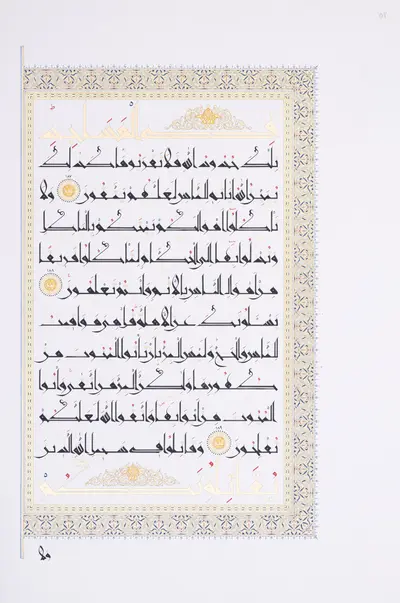 في المساجد
تلك حدود الله فلا تقربوها كذلك
يبين الله آياته للناس لعلهم يتقون ١٨٧ ولا
تأكلوا أموالكم بينكم بالباطل
وتدلوا بها إلى الحكام لتأكلوا فريقا
من أموال الناس بالإثم وأنتم تعلمون ١٨٨
يسألونك عن الأهلة قل هي مواقيت
للناس والحج وليس البر بأن تأتوا البيوت من
ظهورها ولكن البر من اتقى وأتوا
البيوت من أبوابها واتقوا الله لعلكم
تفلحون ١٨٩ وقاتلوا في سبيل الله الذين
يقاتلونكم
ولا